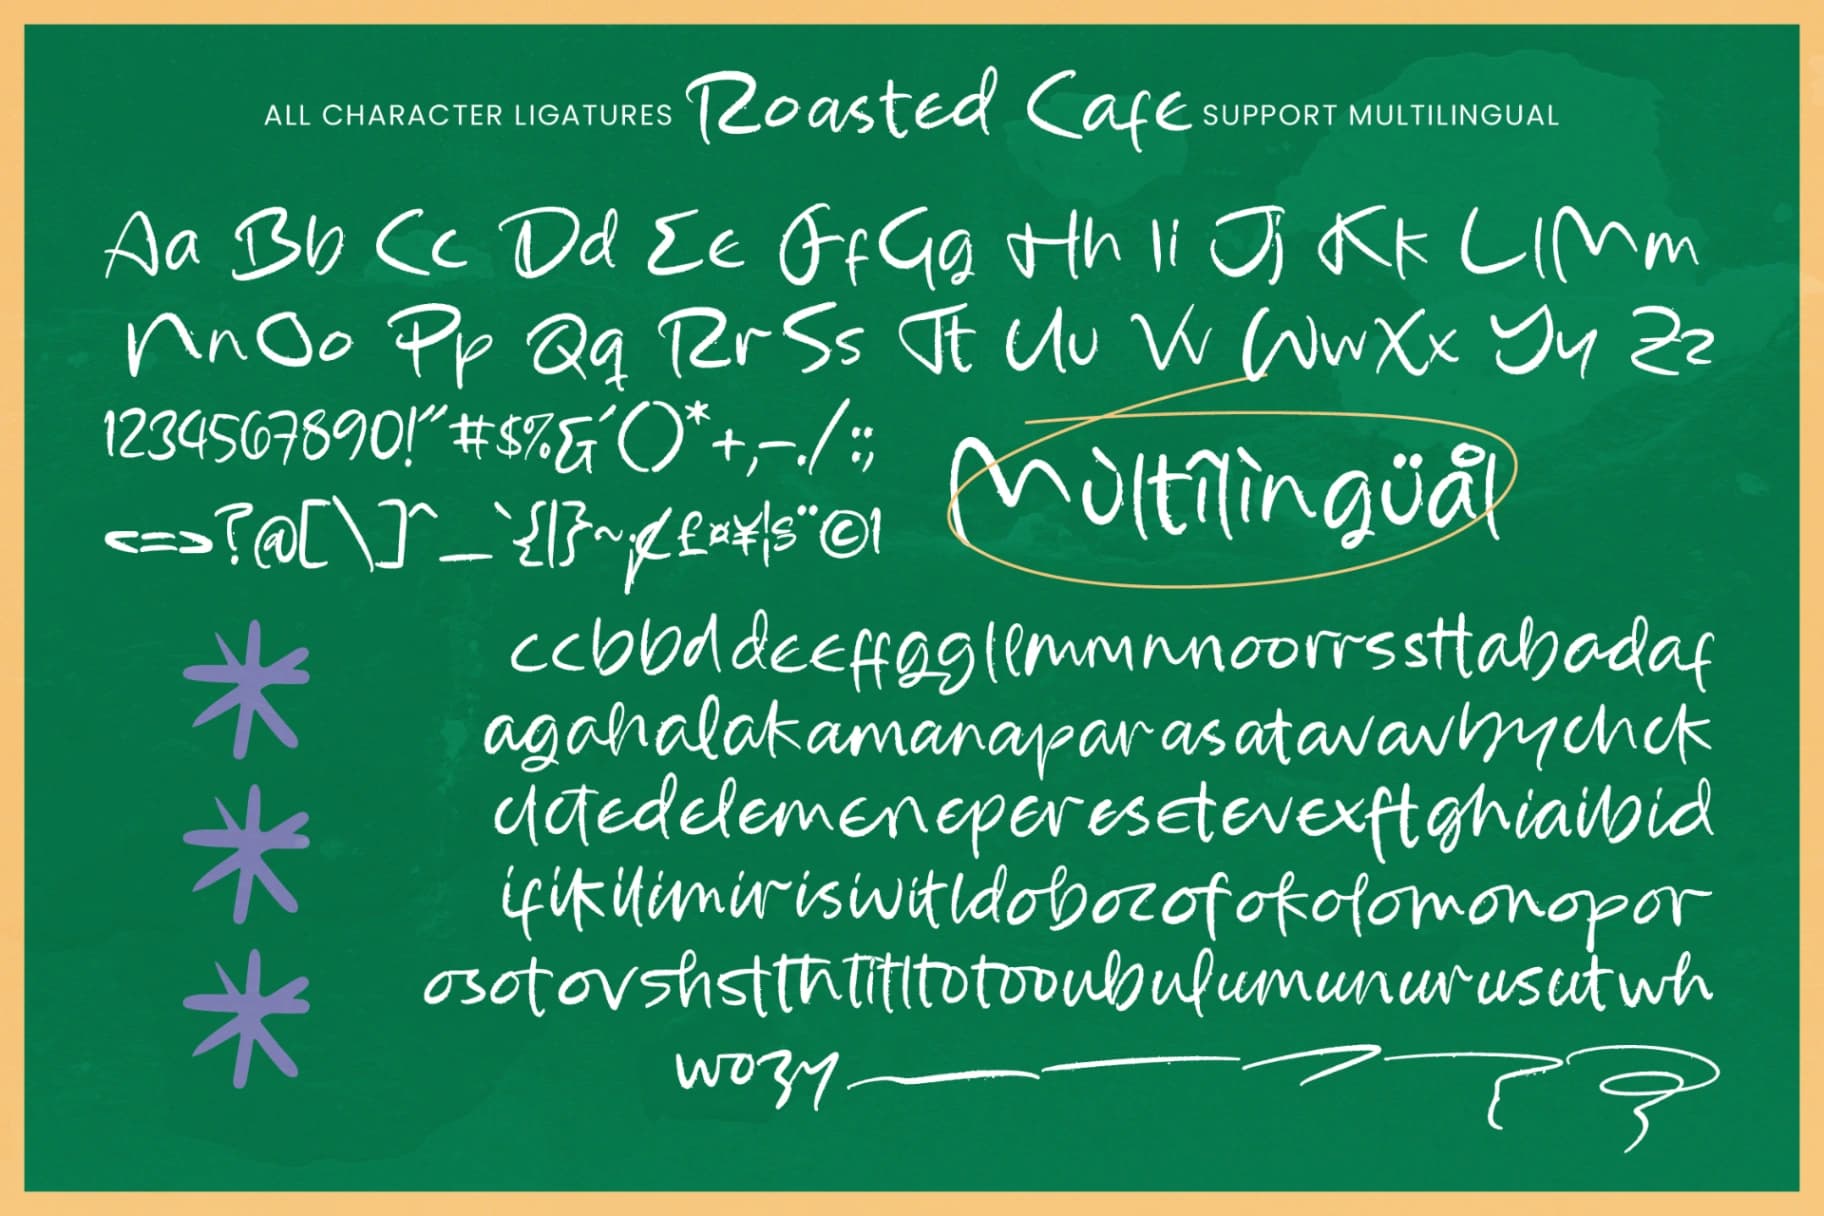 ALL CHARACTER LIGATURES Roasted Cafe SUPPORT MULTILINGUAL
Aa Bb Cc Dd Ee Ff Gg Hh Ii Jj Kk Ll Mm
Nn Oo Pp Qq Rr Ss Tt Uu Vv Ww Xx Yy Zz
1234567890!"#$%&'()*+,-./:;
<=>?@[\]^_`{|}~¡¢£¤¥¦§¨©1
Mùltîlìngüål
ccbbdddeeffggllmmnnoorrssttabadaf
agahalakamanaparasatavavbychck
clctedelemeneperesetevexftghiaibid
ifikilimirisivitldobozofokolomonopor
osotovshstthtitltotooubulumunurusutwh
wozy